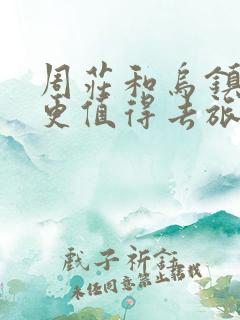 周莊和烏鎮
更值得去旅
戲子祈話
未经同意禁止搭戏